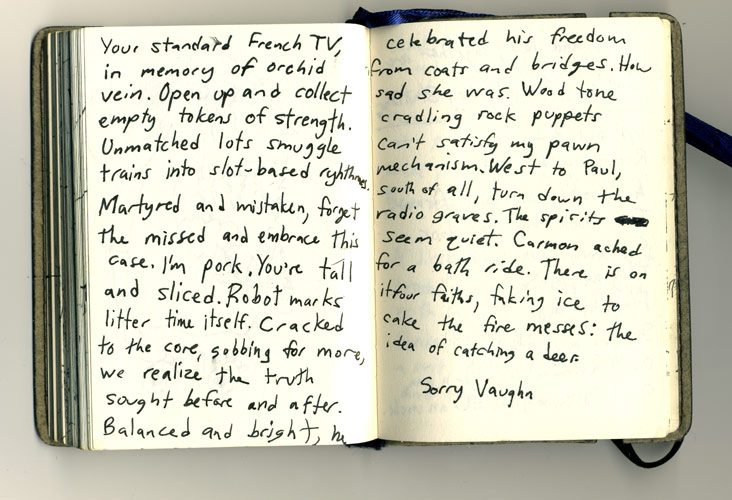 Your standard French TV,
in memory of orchid
vein. Open up and collect
empty tokens of strength.
Unmatched lots smuggle
trains into slot-based
Martyred and mistaken, forget
the missed and embrace this
case. I'm pork. You're tall
and sliced. Robot marks
litter time itself. Cracked
to the core, sobbing for more,
we realize the truth
sought before and after.
Balanced and bright, he
celebrated his freedom
from coats and bridges. How
sad she was. Wood tone
cradling rock puppets
can't satisfy my pawn
mechanism. West to Paul,
south of all, turn down the
radio graves. The spirits
seem quiet. Carmon ached
for a bath ride. There is on
it four faiths, faking ice to
cake the fire messes: the
idea of catching a deer.
Sorry Vaughn